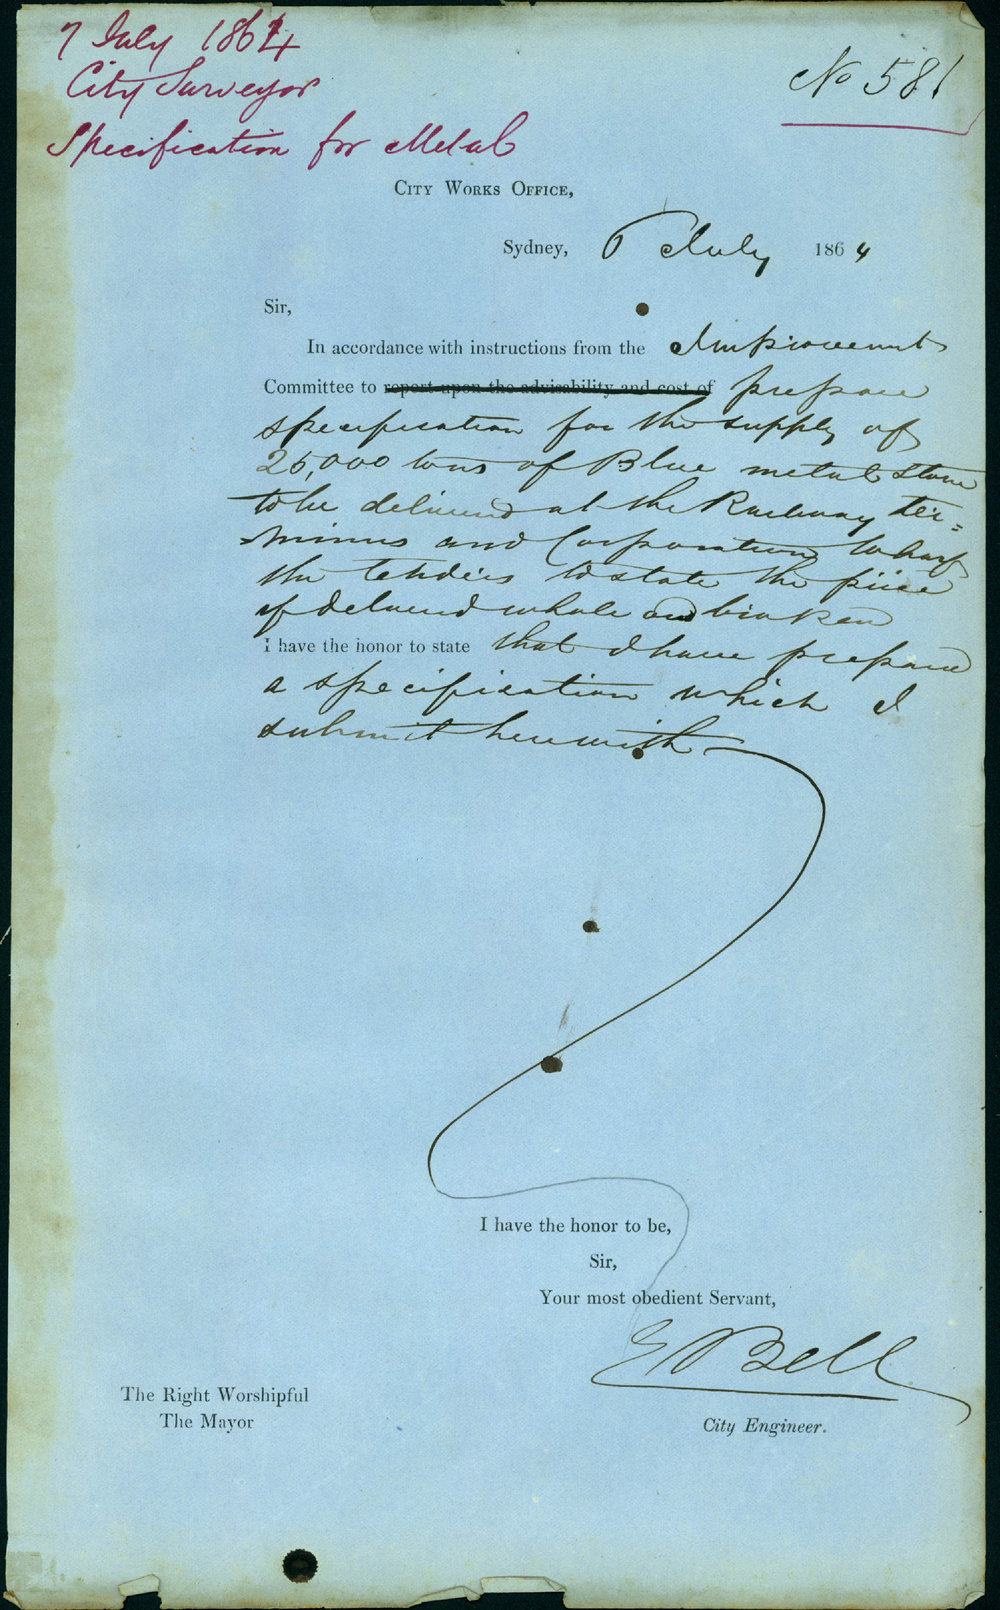 7 July 1864
City Surveyor
Specification for Metal
No 581
City Works Office,
Sydney, 6 July 1864
Sir,
In accordance with instructions from the Improvement
Committee to report upon the advisability and cost of prepare
specification for the supply of
25,000 tons of Blue metal stone
to be delivered at the Railway Ter=
=minus and Corporation Wharf
the tenders to state the price
if delivered whole and broken
I have the honor to state that I have prepared
a specification which I
submit herewith
I have the honor to be,
Sir,
Your most obedient Servant,
E Bell
City Engineer.
The Right Worshipful
The Mayor